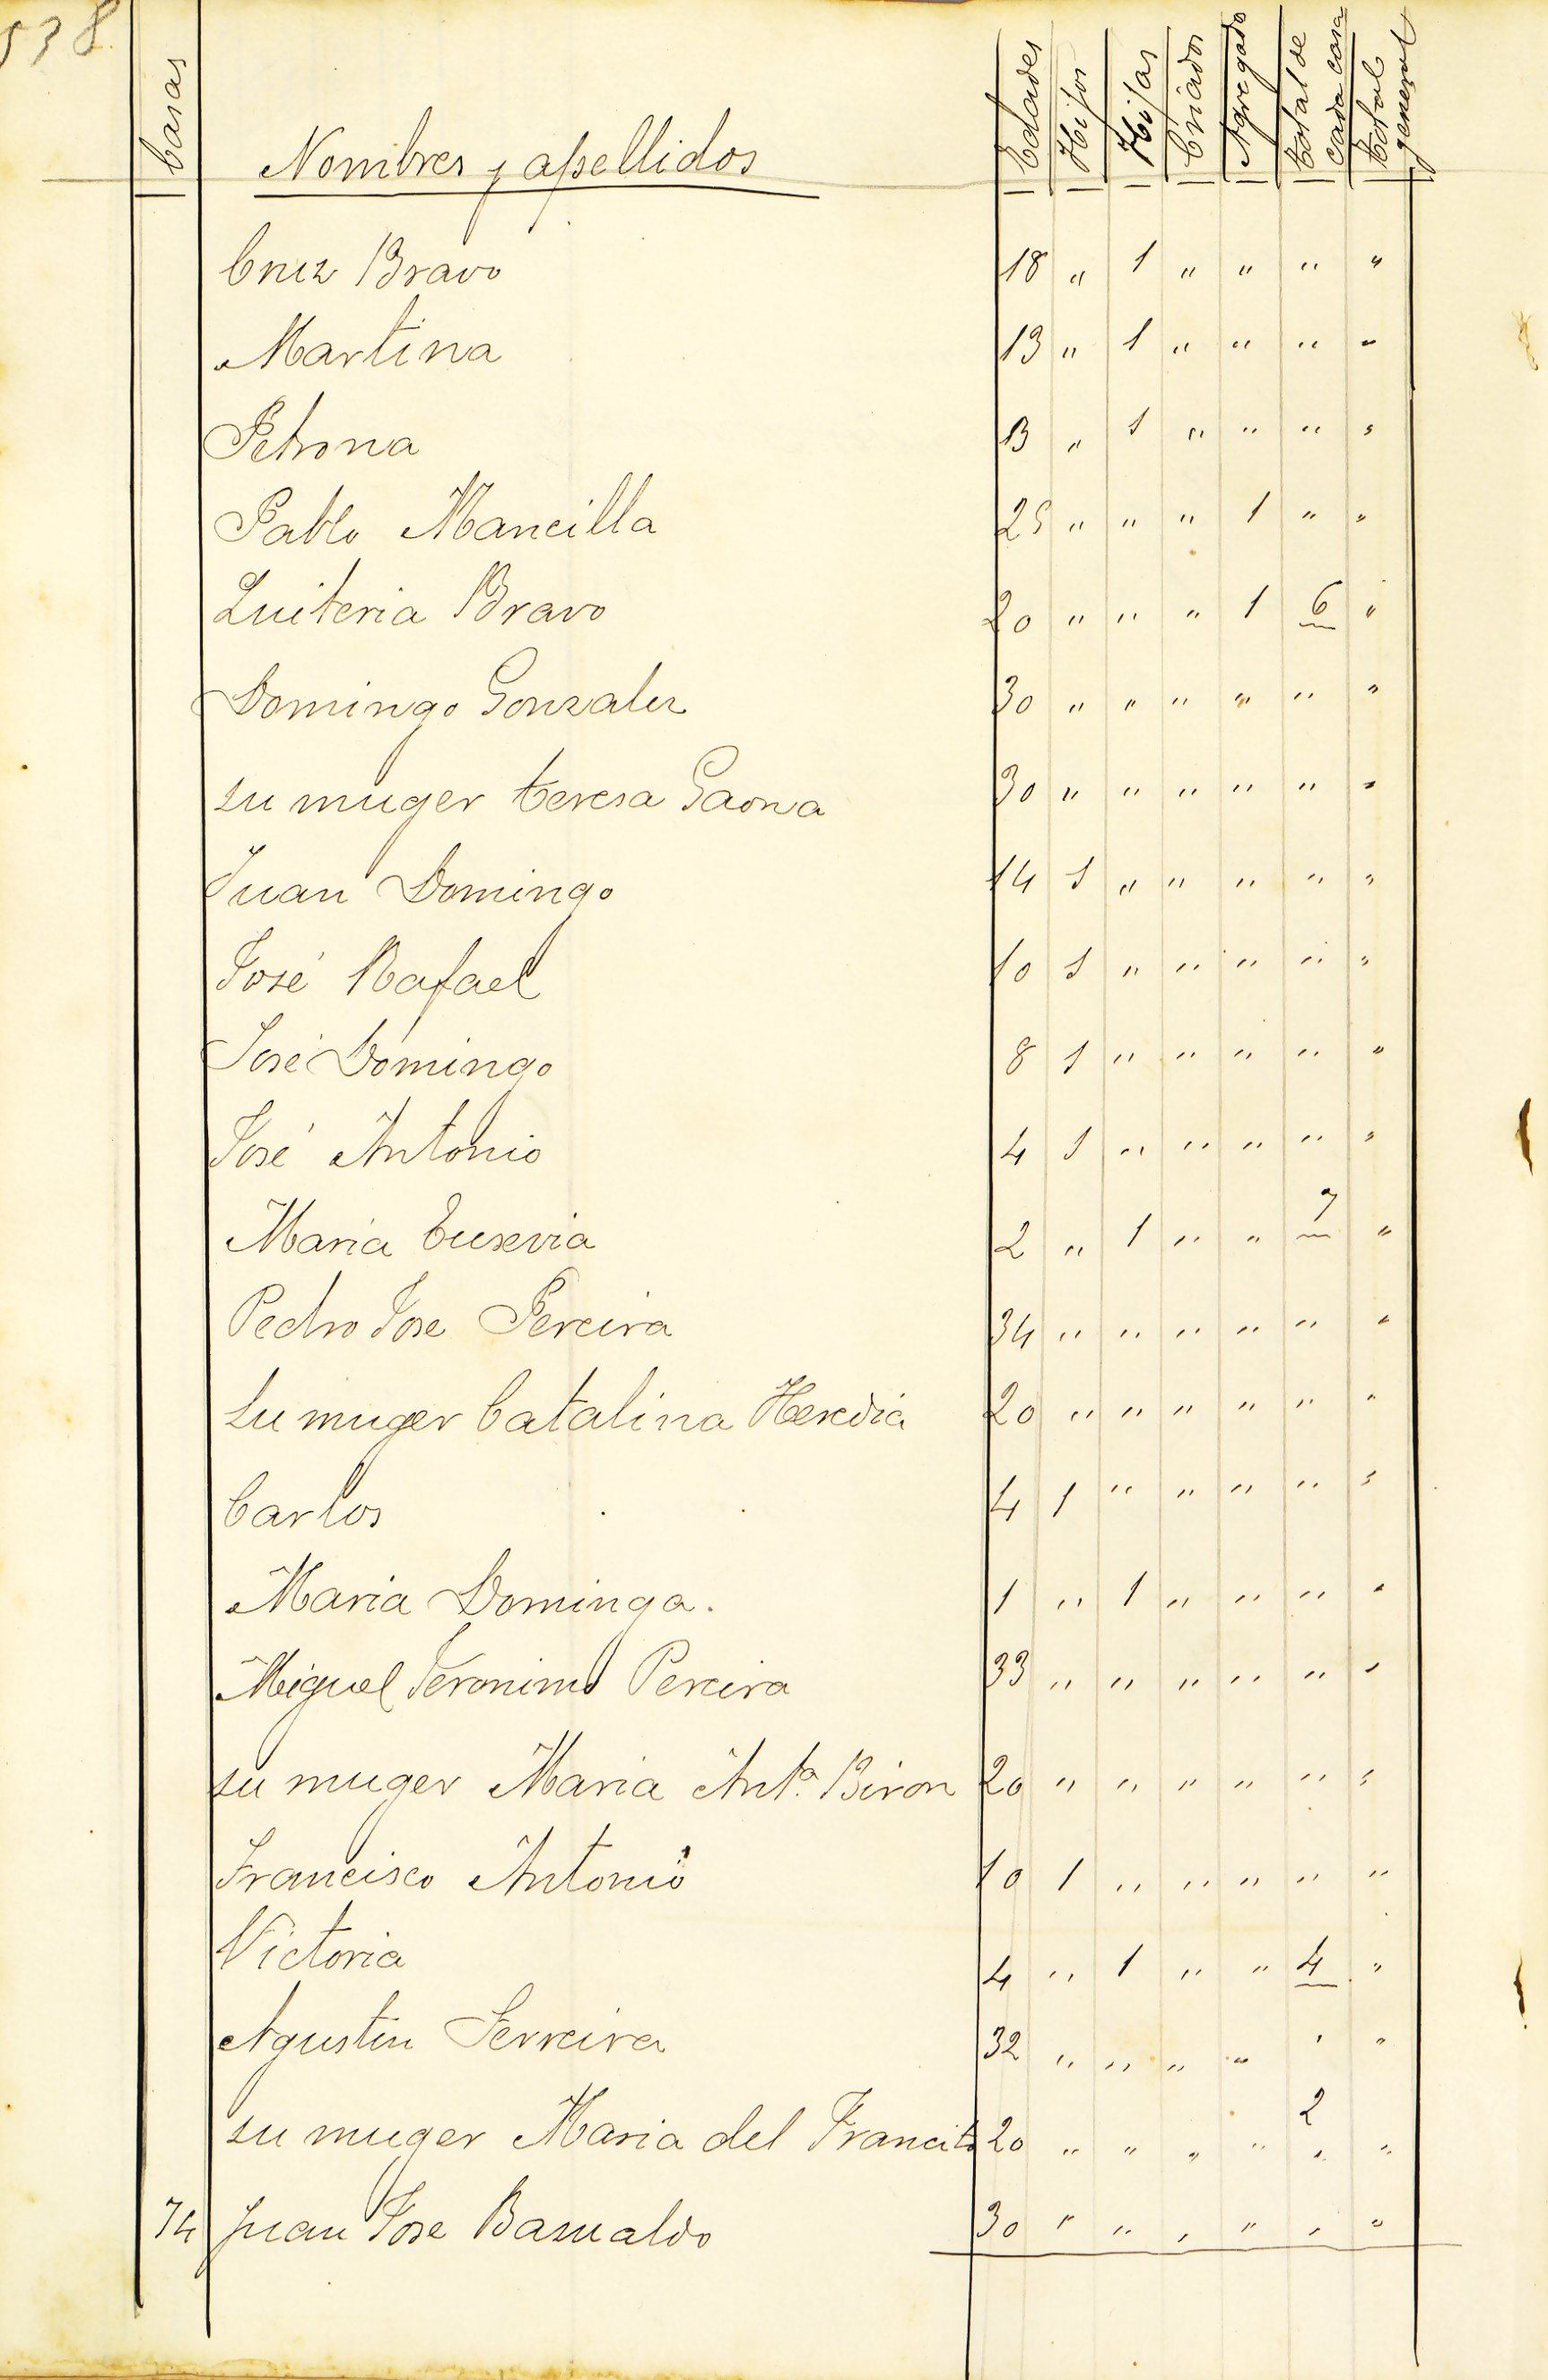 538
Casas Nombres y apellidos Edades Hijos Hijas Criados Agregado Total de cada casa Total general
Cruz Bravo 18 " 1 " " " "
Martina 13 " 1 " " " "
Petrona 13 " 1 " " " "
Pablo Mancilla 25 " " " 1 " "
Luiteria Bravo 20 " " " 1 6 "
Domingo Gonzalez 30 " " " " " "
su muger teresa Gaona 30 " " " " " "
Juan Domingo 14 1 " " " " "
José Rafael 10 1 " " " " "
José Domingo 8 1 " " " " "
José Antonio 4 1 " " " " "
Maria Eusevia 2 " 1 " " 7 "
Pedro Jose Pereira 34 " " " " " "
su muger Catalina Heredia 20 " " " " " "
Carlos 4 1 " " " " "
Maria Dominga. 1 " 1 " " " "
Miguel Jeronimo Pereira 33 " " " " " "
su muger Maria Antª Biron 20 " " " " " "
Francisco Antonio 10 1 " " " " "
Victoria 4 " 1 " " 4 "
Agustin Ferreira 32 " " " " ' "
su muger Maria del Francito 20 " " " " 2 "
74 Juan Jose Basualdo 30 " " , " , "